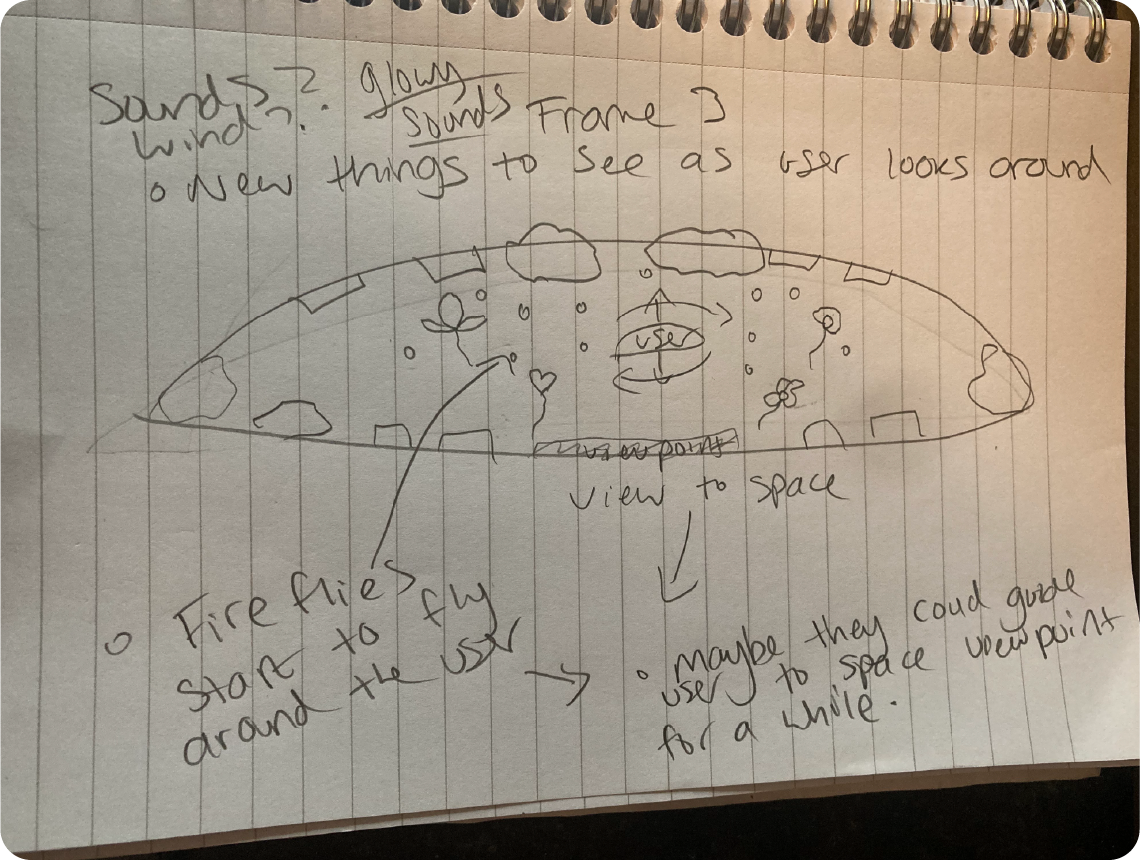 Sounds?
wind?
glowy
sounds
Frame 3
o New things to see as user looks around
user
viewpoint
view to space
o Fire flies
start to fly
around the user
• maybe they coud guide
user to space viewpoint
for a while.